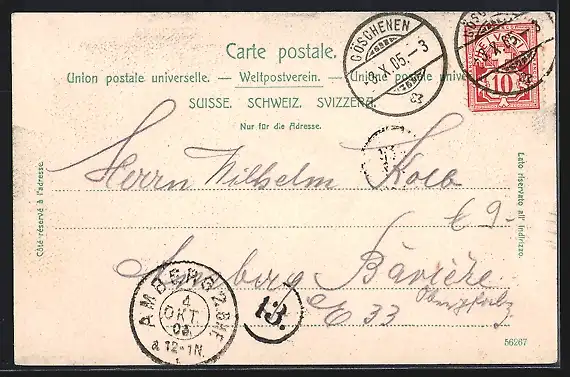 Carte postale.
Union postale universelle. — Weltpostverein. — Unione postale univer
SUISSE. SCHWEIZ. SVIZZERA.
Nur für die Adresse.
GÖSCHENEN
X.05.-3
HELVETIA
10
GÖSCH
X.05
Côté réservé à l'adresse.
Lato riservato all' indirizzo.
Herrn Wilhelm Kolb
E 9-
Amberg Bavière
E 33
AMBERG 2. BHF.
4
OKT.
12-1N.
13.
56267